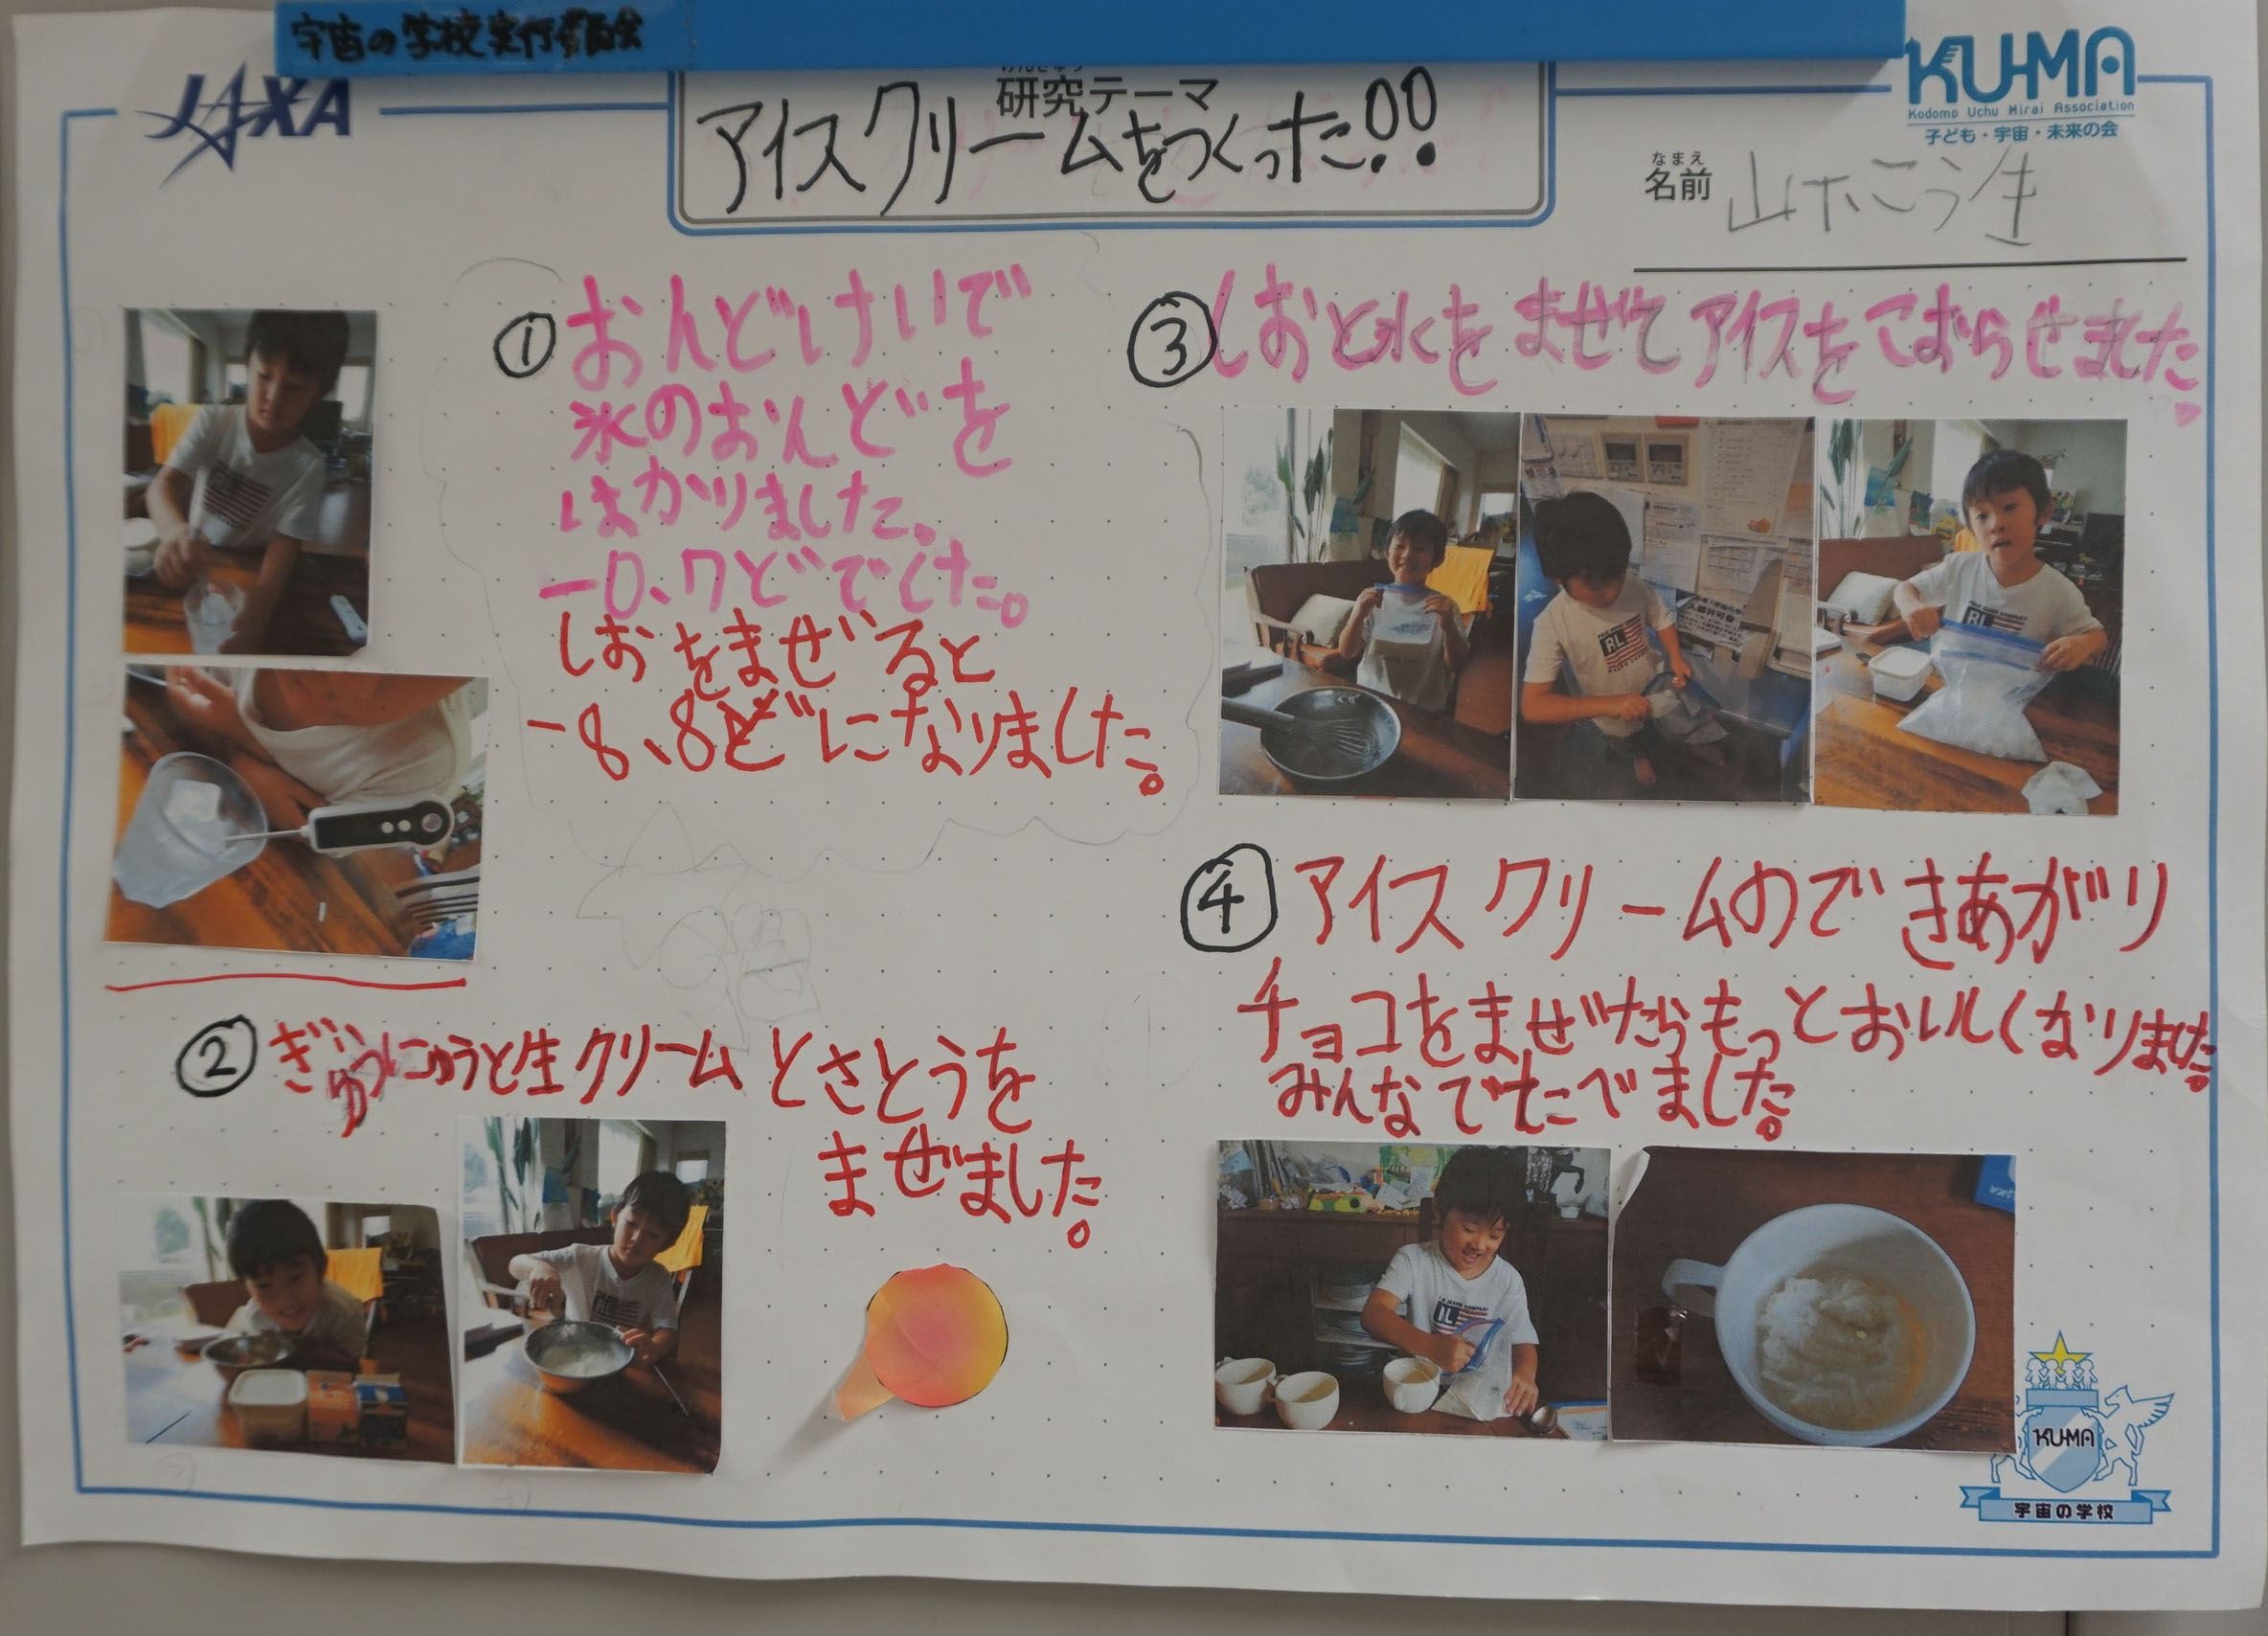 宇宙の学校実行委員会
JAXA
研究テーマ
アイスクリームをつくった!!
KU-MA
Kodomo Uchu Mirai Association
子ども・宇宙・未来の会
なまえ
名前
①おんどけいで
氷のおんどを
はかりました。
-0、7どでした。
しおをまぜると
-8、8どになりました。
②ぎゅうにゅうと生クリームとさとうを
まぜました。
③しおと氷をまぜてアイスをこおらせました。
④アイスクリームのできあがり
チョコをまぜたらもっとおいしくなりました。
みんなでたべました。
KU-MA
宇宙の学校